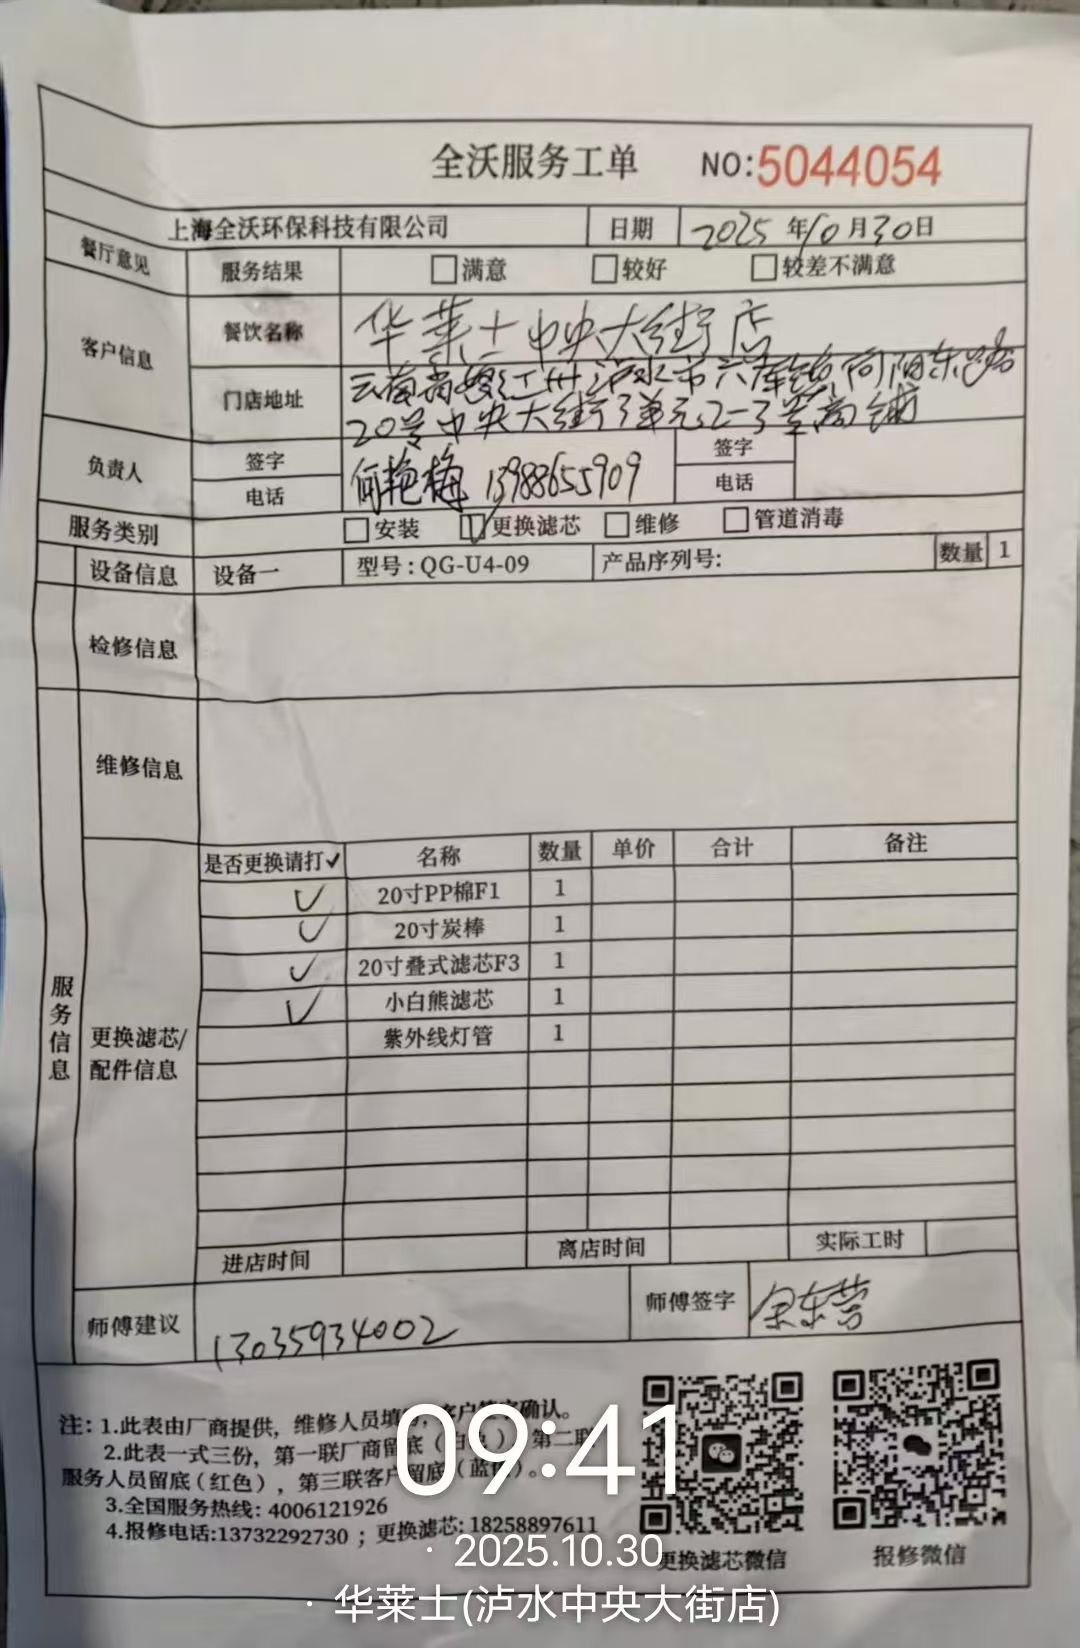 全沃服务工单 NO:5044054
上海全沃环保科技有限公司 日期 2025年10月30日
餐厅意见 服务结果 满意 较好 较差不满意
客户信息 餐饮名称 华莱士中央大街店
门店地址 云南省怒江州泸水市六库镇向阳东路
20号中央大街3单元2-3号商铺
负责人 签字 何艳梅 13988655909 签字
电话 电话
服务类别 安装 ✓更换滤芯 维修 管道消毒
设备信息 设备一 型号:QG-U4-09 产品序列号: 数量 1
检修信息
维修信息
服务信息
更换滤芯/
配件信息
是否更换请打✓ 名称 数量 单价 合计 备注
✓ 20寸PP棉F1 1
✓ 20寸炭棒 1
✓ 20寸叠式滤芯F3 1
✓ 小白熊滤芯 1
紫外线灯管 1
进店时间 离店时间 实际工时
师傅建议 13035934002 师傅签字
注: 1.此表由厂商提供, 维修人员填写, 客户签字确认。
2.此表一式三份, 第一联厂商留底(白色), 第二联
服务人员留底(红色), 第三联客户留底(蓝色)。
3.全国服务热线: 4006121926
4.报修电话:13732292730 ; 更换滤芯: 18258897611
更换滤芯微信 报修微信
09:41
· 2025.10.30
· 华莱士(泸水中央大街店)